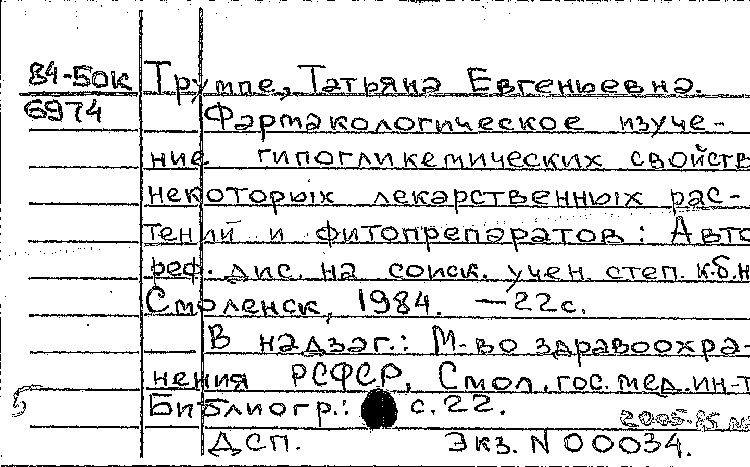 84-50к Труппе, Татьяна Евгеньевна.
6974 Фармакологическое изуче-
ние гипогликемических свойств
некоторых лекарственных рас-
тений и фитопрепаратов: Авто
реф. дис. на соиск. учен. степ. к.б.н
Смоленск, 1984. — 22 с.
В надзаг.: М-во здравоохра-
нения РСФСР, Смол. гос. мед. ин-т
Библиогр.: с. 22.
ДСП. Экз. N 00034.